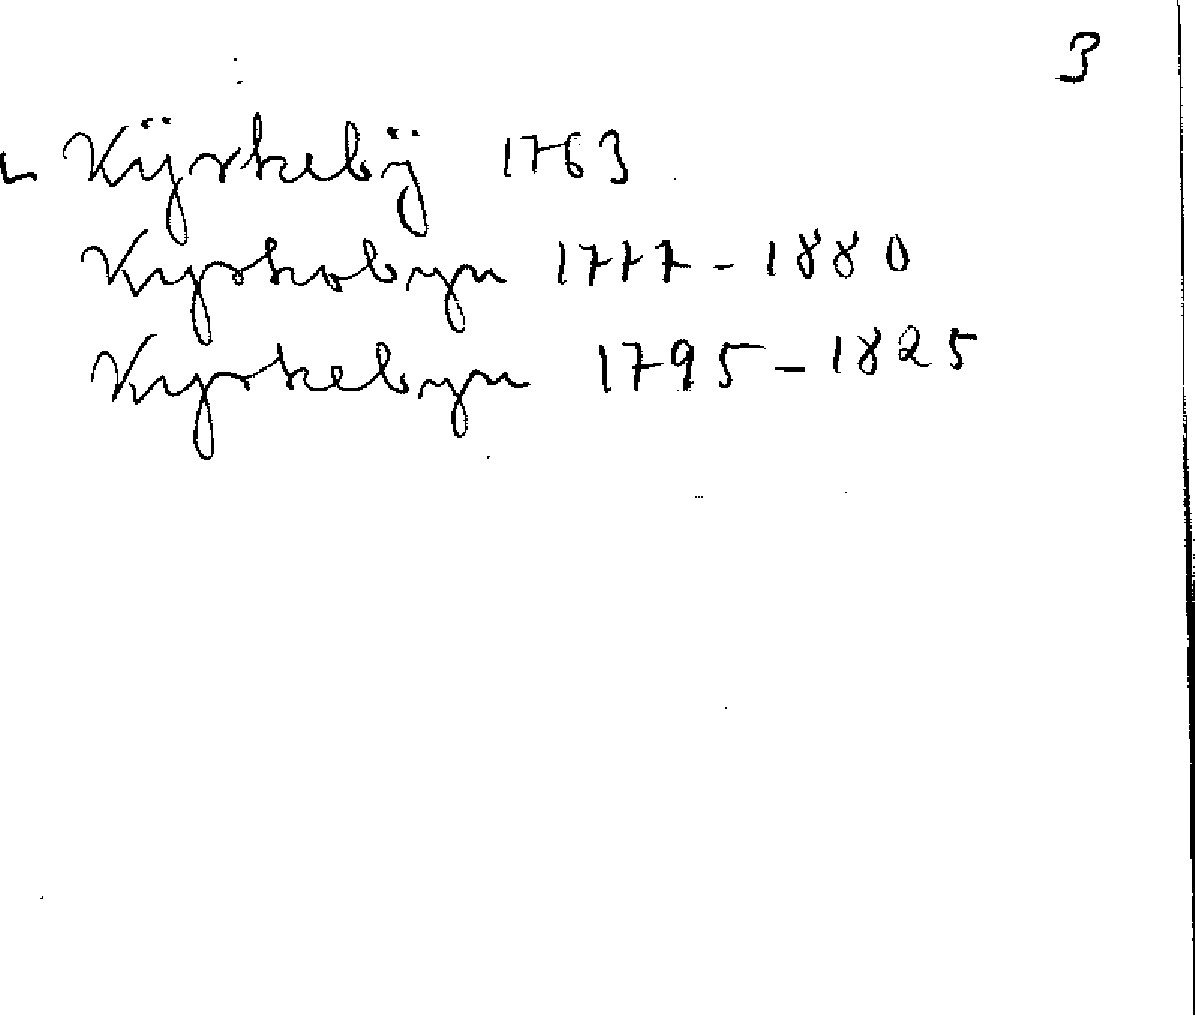 3
Kÿrkebÿ 1763
Kyrkobyn 1777-1880
Kyrkebyn 1795-1825